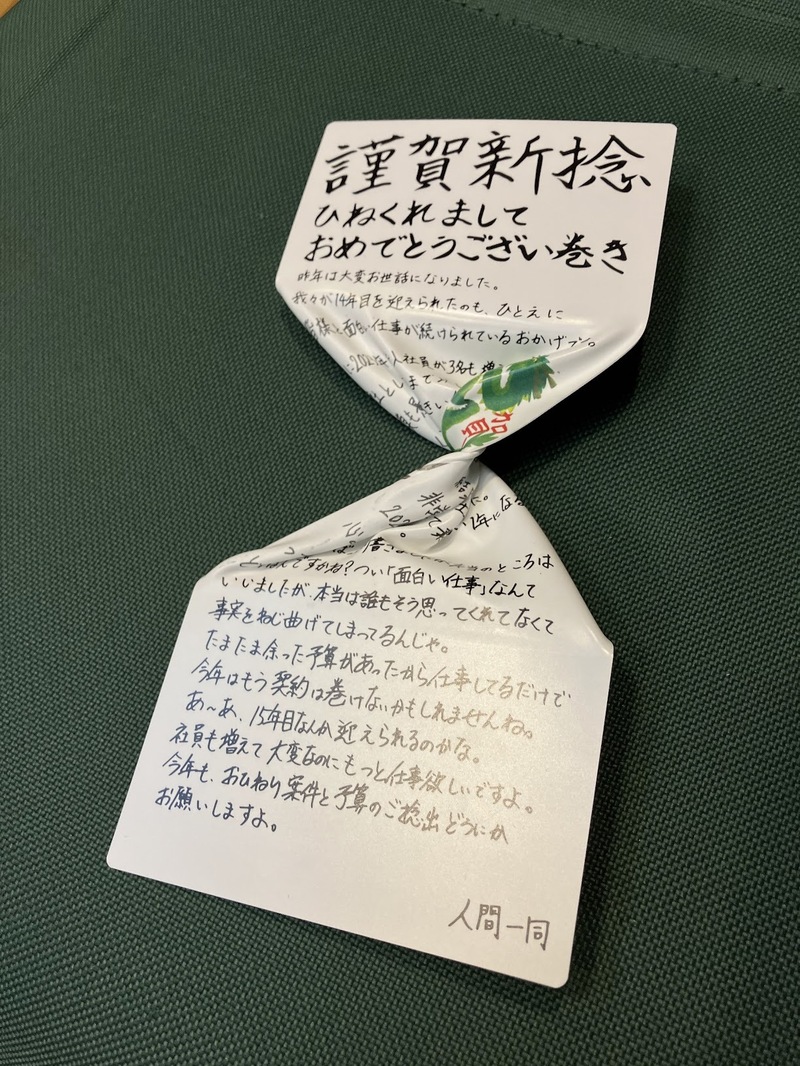 謹賀新捻
ひねくれまして
おめでとうござい巻き
昨年は大変お世話になりました。
我々が14年目を迎えられたのも、ひとえに
様と面白い仕事が続けられているおかげ
社員が3名も増
としまして
賀
非常に
1年にな
202
ところは
んですかね?つい「面白い仕事」なんて
いいましたが、本当は誰もそう思ってくれてなくて
事実をねじ曲げてしまってるんじゃ。
たまたま余った予算があったから仕事してるだけで
今年はもう契約は巻けないかもしれませんね。
あ〜あ、15年目なんか迎えられるのかな。
社員も増えて大変なのにもっと仕事欲しいですよ。
今年も、おひねり案件と予算のご捻出どうにか
お願いしますよ。
人間一同